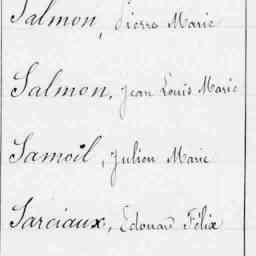 Salmon, Pierre Marie
Salmon, Jean Louis Marie
Samoil, Julien Marie
Sarciaux, Edouard Félix